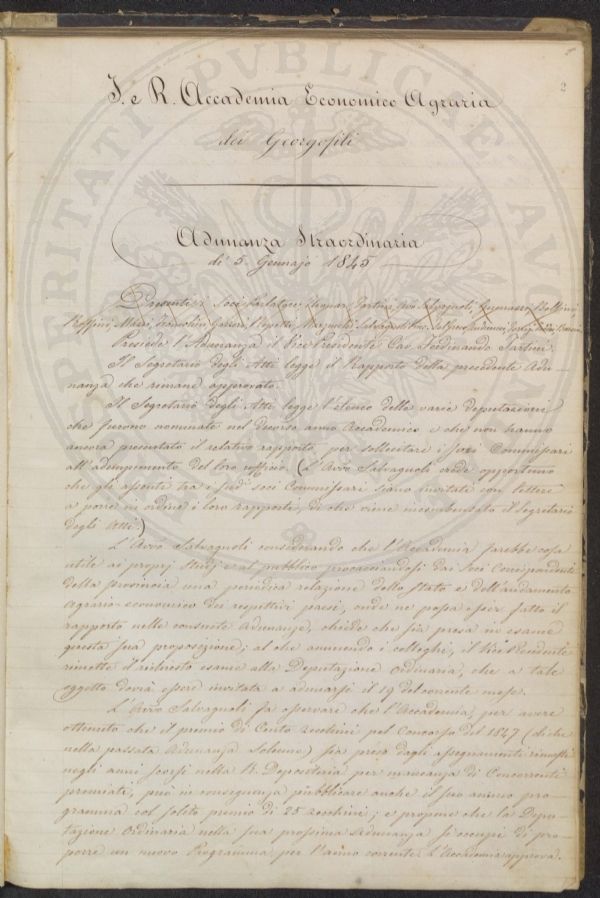 2
I. e R. Accademia Economico Agraria
dei Georgofili
Adunanza Straordinaria
di 5. Gennajo 1845
Presenti i Soci
Presiede l'Adunanza il Vice Presidente Cav. Ferdinando Tartini.
Il Segretario degli Atti legge il Rapporto della precedente Adu-
nanza che rimane approvato.
Il Segretario degli Atti legge l'elenco delle varie deputazioni
che furono nominate nel decorso anno Accademico e che non hanno
ancora presentato il relativo rapporto, per sollecitare i Soci Commissari
all'adempimento del loro ufficio. (L'Avvo Salvagnoli crede opportuno
che gli assenti tra i sudi soci Commissari siano invitati con lettere
a porre in ordine i loro rapporti, di che viene incombensato il Segretario
degli Atti.)
L'Avvo Salvagnoli considerando che l'Accademia farebbe cosa
utile ai proprj studj e al pubblico procacciandosi dai Soci Corrispondenti
della provincia una periodica relazione dello stato e dell'andamento
agrario-economico dei respettivi paesi, onde ne possa esser fatto il
rapporto nelle consuete adunanze, chiede che sia presa in esame
questa sua proposizione; al che annuendo i colleghi, il Vice Presidente
rimette il richiesto esame alla Deputazione Ordinaria, che a tale
oggetto dovrà essere invitata a adunarsi il 19 del corrente mese.
L'Avvo Salvagnoli fa osservare che l'Accademia, per avere
ottenuto che il premio di Cento zecchini pel Concorso del 1847 (di che
nella passata Adunanza Solenne) sia preso dagli assegnamenti rimasti
negli anni scorsi nella R. Depositeria per mancanza di Concorrenti
premiati, può in conseguenza pubblicare anche il suo annuo pro-
gramma col solito premio di 25 zecchini; e propone che la Depu-
tazione Ordinaria nella sua prossima Adunanza si occupi di pro-
porre un nuovo Programma per l'anno corrente. L'Accademia approva.